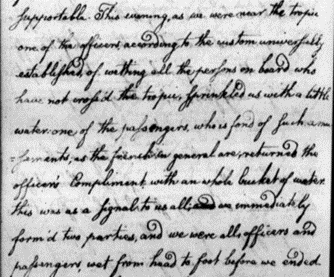 supportable. This evening, as we were near the tropic
one of the officers, according to the custom universally
established, of wetting all the persons on board who
have not cross'd the tropic, sprinkled us with a little
water. one, of the passengers, who is fond of such a mu
=sements, as the french in general are, returned the
officer's Compliment, with an whole bucket of water
this was as a signal to us all, we immediately
form'd two parties, and we were all officers and
passengers, wet from head to foot before we ended